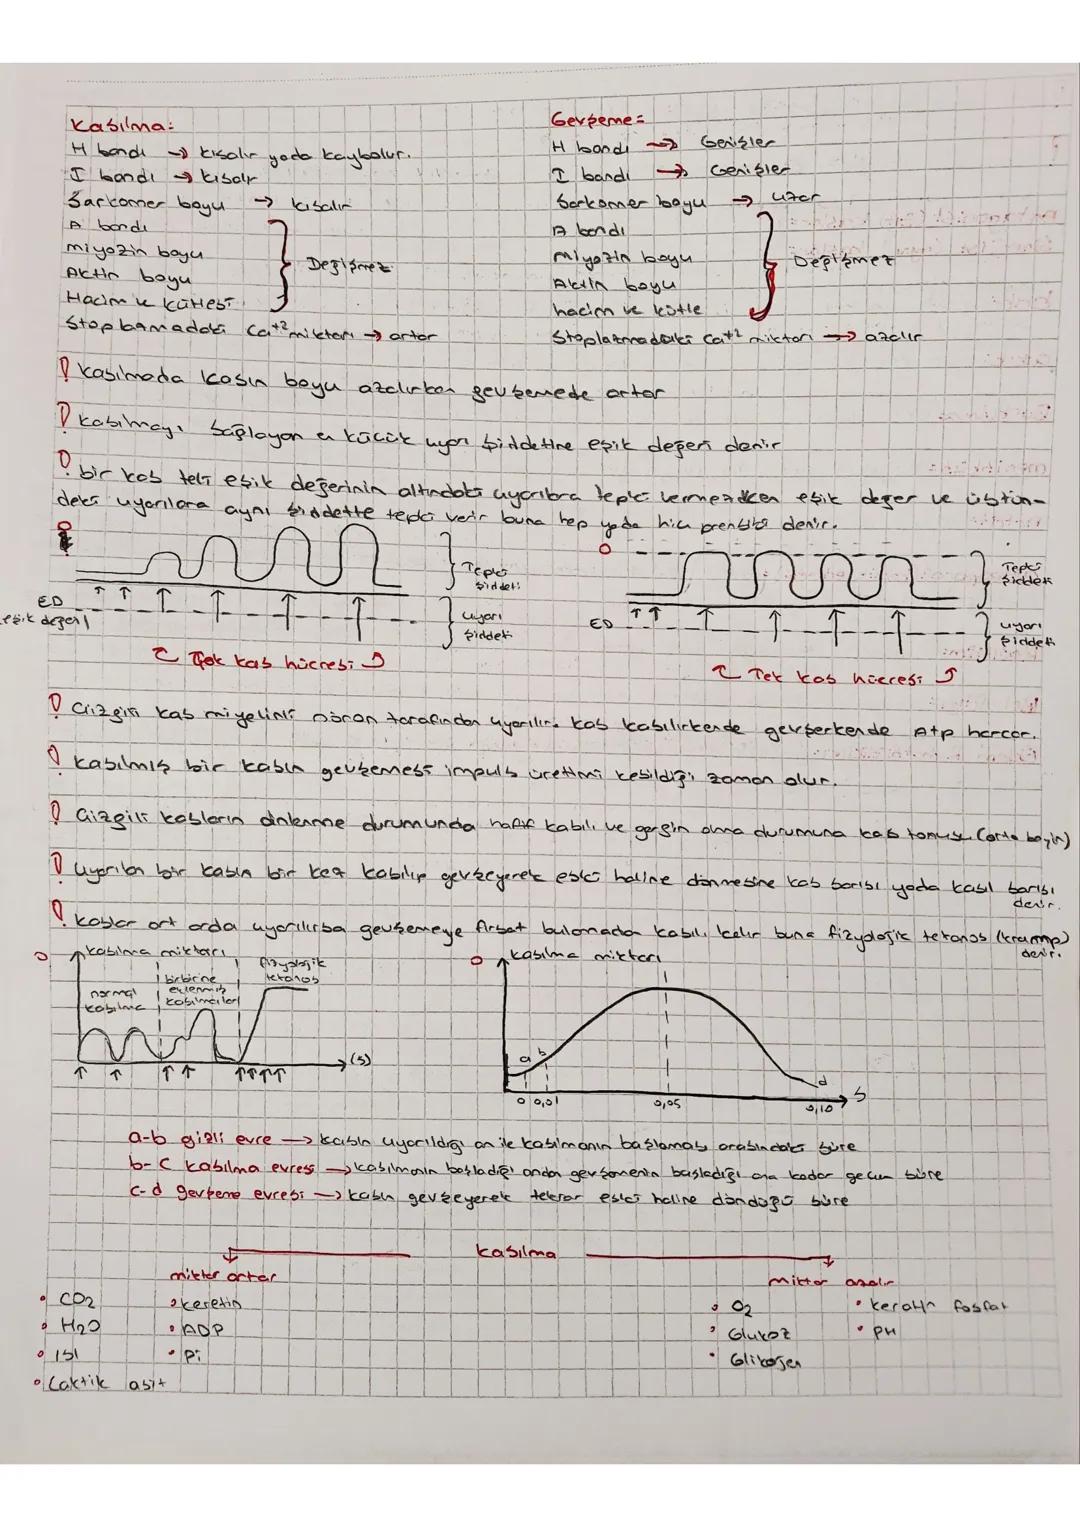 Kasılma:
H bandı → kısalır yada kaybolur.
I bandı → kısalır
Sarkomer boyu → kısalır
A bandı
miyozin boyu
Aktin boyu
Hacim ve kütlesi
Değişmez
Stoplamadaki Ca+2 miktarı → artar
Gevşeme:
H bandı → Genişler
I bandı → Genişler
Sarkomer boyu → uzar
A bandı
miyozin boyu
Aktin boyu
hacim ve kütle
Değişmez
Stoplazmadaki Ca+2 miktarı → azalır
! kasılmada kasın boyu azalırken gevşemede artar
! kasılmayı sağlayan en küçük uyarı şiddetine eşik değeri denir
! bir kas teli eşik değerinin altındaki uyarılara tepki vermezken eşik değer ve üstün-
deki uyarılara aynı şiddette tepki verir buna hep yada hiç prensibi denir.
Tepki şiddeti
uyarı şiddeti
ED
eşik değeri
Çok kas hücresi
Tepki şiddeti
uyarı şiddeti
ED
Tek kas hücresi
! Çizgili kas miyelinli nöron tarafından uyarılır. kas kasılırkende gevşerkende Atp harcar.
! kasılmış bir kasın gevşemesi impuls üretimi kesildiği zaman olur.
! Çizgili kasların dinlenme durumunda hafif kasılı ve gergin olma durumuna kas tonusu (orta beyin)
! uyarılan bir kasın bir kez kasılıp gevşeyerek eski haline dönmesine kas sarısı yada kasıl sarısı
denir.
! kaslar art arda uyarılırsa gevşemeye fırsat bulamadan kasılı kalır buna fizyolojik tetanos (kramp)
denir.
kasılma miktarı
normal kasılma
birbirine eklenmiş kasılmalar
fizyolojik tetanos
(s)
kasılma miktarı
a b
d
0 0,01 0,05 0,10 s
a-b gizli evre → kasın uyarıldığı an ile kasılmanın başlaması arasındaki süre
b-c kasılma evresi → kasılmanın başladığı andan gevşemenin başladığı ana kadar geçen süre
c-d gevşeme evresi → kasın gevşeyerek tekrar eski haline döndüğü süre
kasılma
miktar artar
• CO2
• H2O
• ısı
• Laktik asit
• keretin
• ADP
• Pi
miktar azalır
• O2
• Glukoz
• Glikojen
• keratin fosfat
• PH